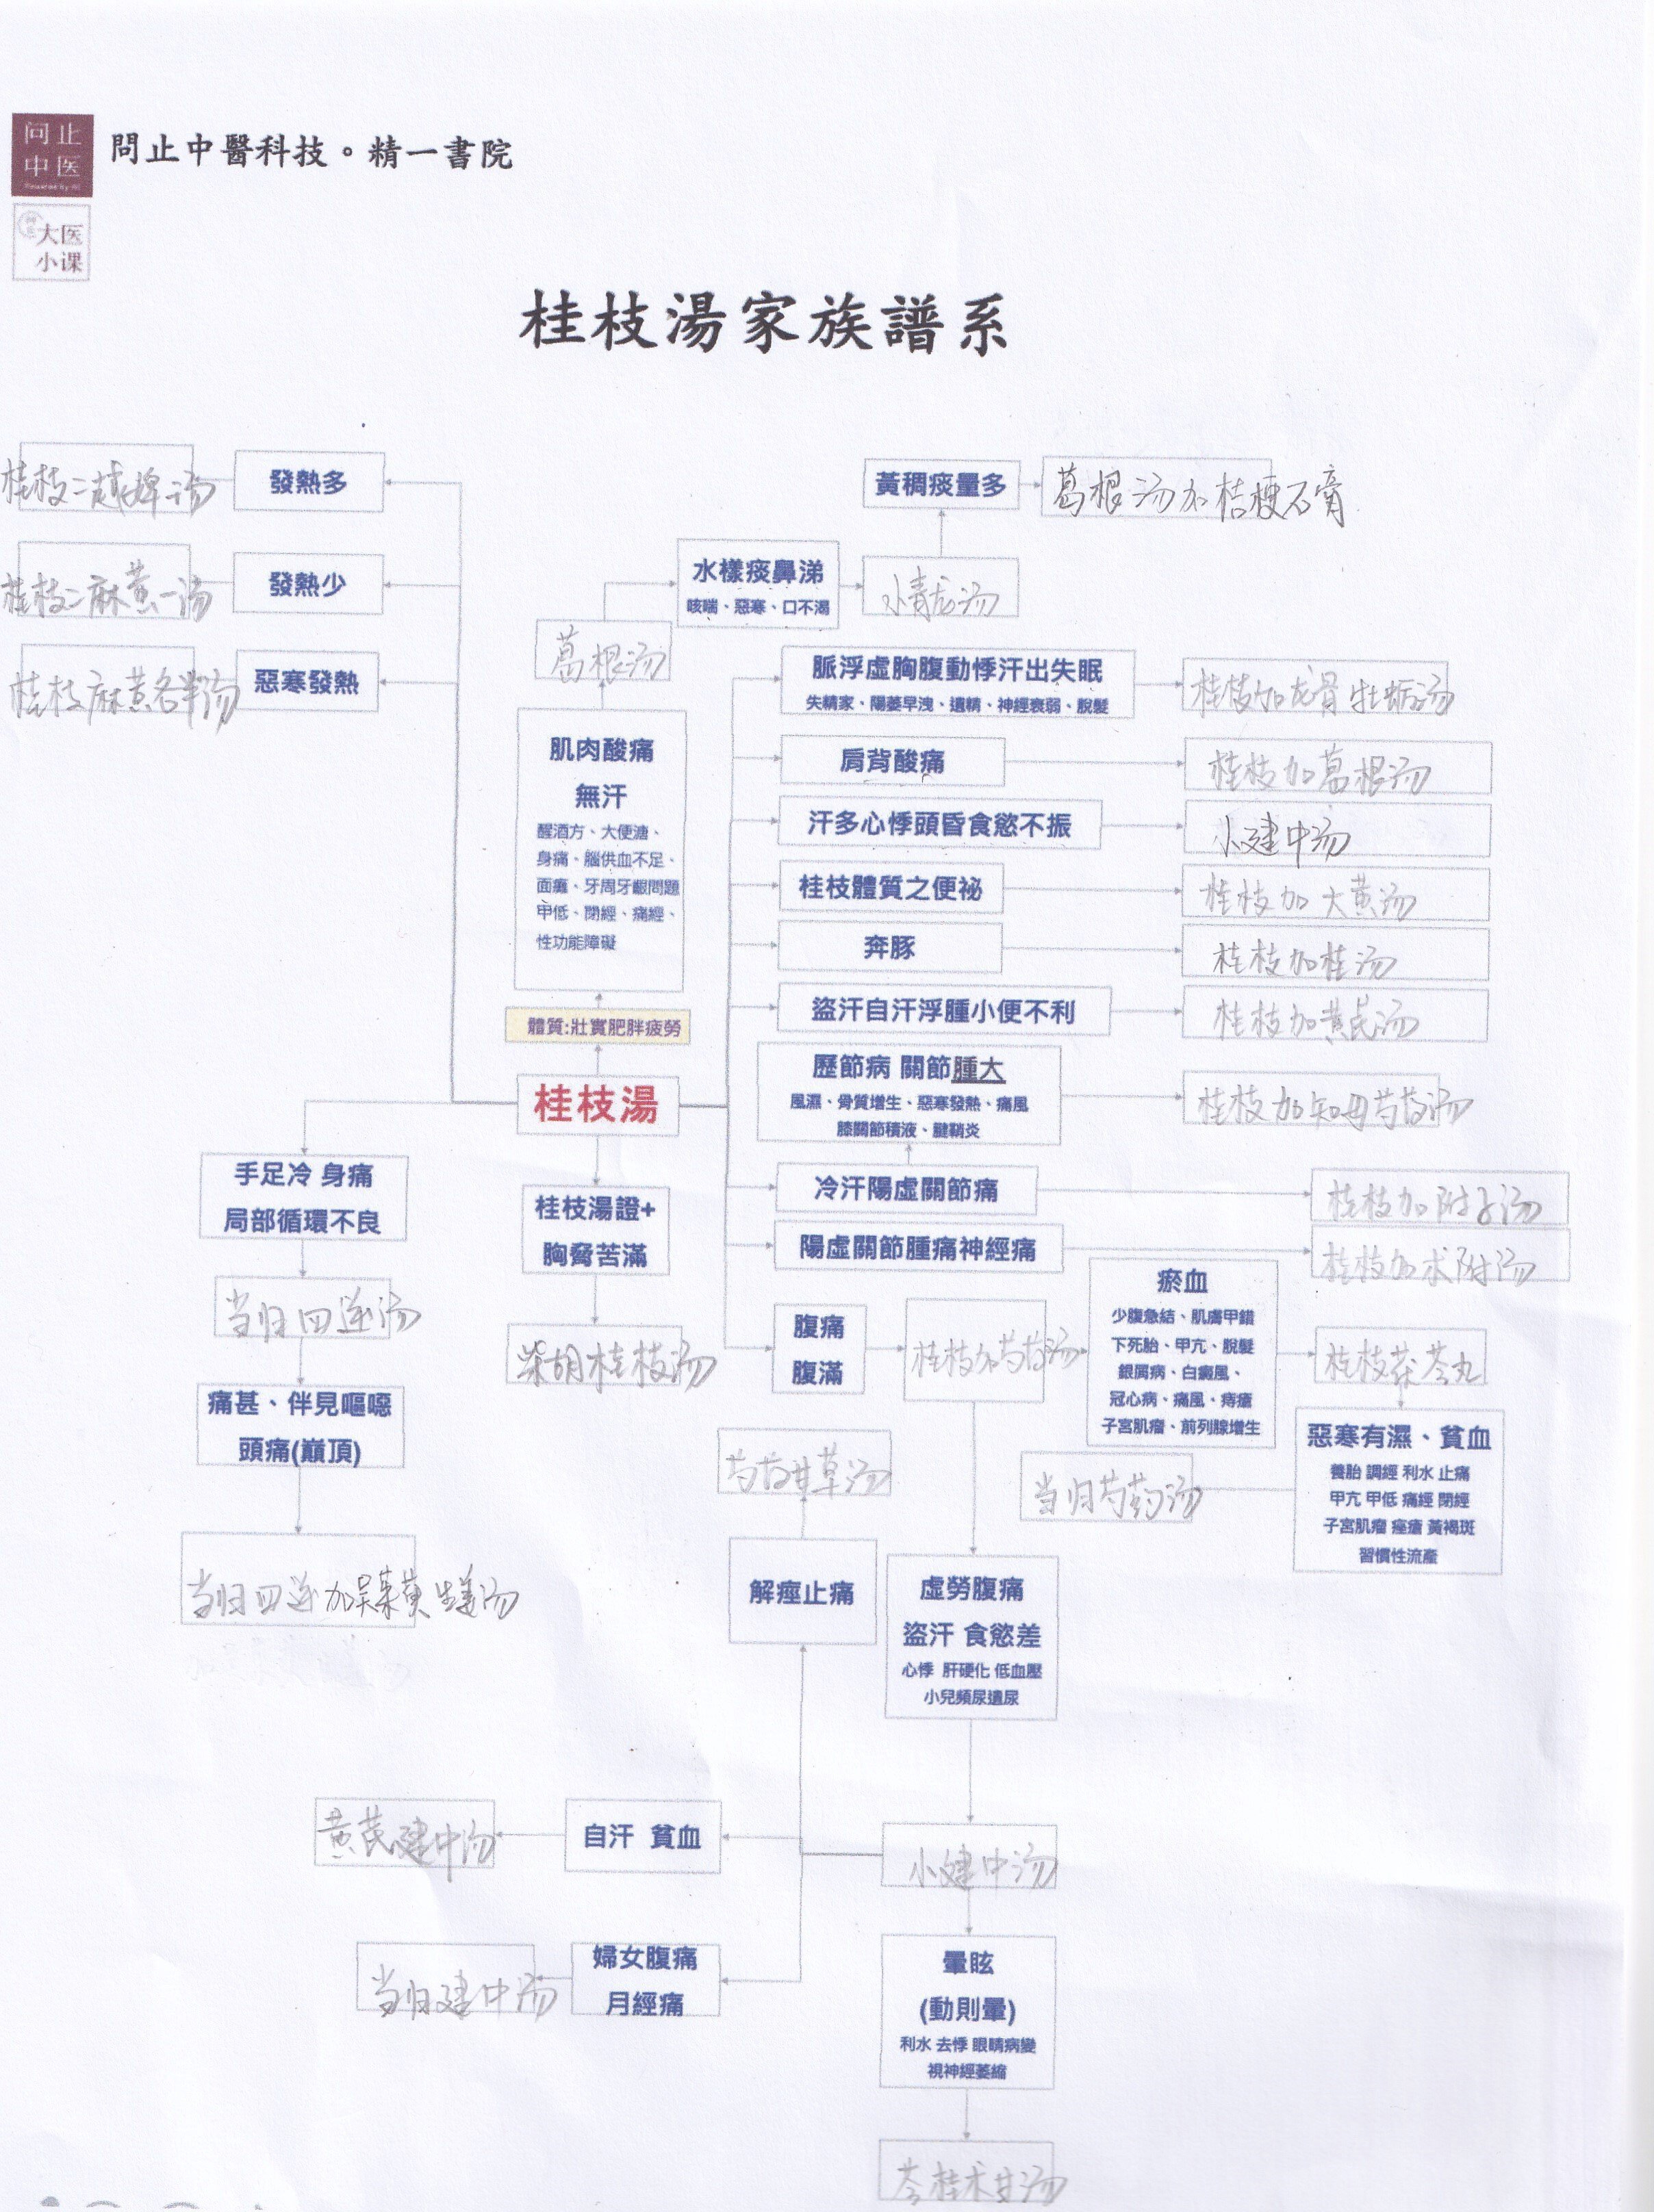 问止
中医
Powered By AI
大医
小课
問止中醫科技。精一書院
桂枝湯家族譜系
桂枝二越婢一汤
發熱多
桂枝二麻黄一汤
發熱少
桂枝麻黄各半汤
惡寒發熱
黃稠痰量多
葛根汤加桔梗石膏
水樣痰鼻涕
咳喘、惡寒、口不渴
小青龙汤
葛根汤
肌肉酸痛
無汗
醒酒方、大便溏、
身痛、腦供血不足、
面癱、牙周牙齦問題
甲低、閉經、痛經、
性功能障礙
體質:壯實肥胖疲勞
桂枝湯
脈浮虛胸腹動悸汗出失眠
失精家、陽萎早洩、遺精、神經衰弱、脫髮
桂枝加龙骨牡蛎汤
肩背酸痛
桂枝加葛根汤
汗多心悸頭昏食慾不振
小建中汤
桂枝體質之便祕
桂枝加大黄汤
奔豚
桂枝加桂汤
盜汗自汗浮腫小便不利
桂枝加黄芪汤
歷節病 關節腫大
風濕、骨質增生、惡寒發熱、痛風
膝關節積液、腱鞘炎
桂枝加知母芍药汤
冷汗陽虛關節痛
桂枝加附子汤
陽虛關節腫痛神經痛
桂枝加术附汤
手足冷 身痛
局部循環不良
当归四逆汤
痛甚、伴見嘔噁
頭痛(巔頂)
当归四逆加吴茱萸生姜汤
桂枝湯證+
胸脅苦滿
柴胡桂枝汤
腹痛
腹滿
桂枝加芍药汤
瘀血
少腹急結、肌膚甲錯
下死胎、甲亢、脫髮
銀屑病、白癜風、
冠心病、痛風、痔瘡
子宮肌瘤、前列腺增生
桂枝茯苓丸
惡寒有濕、貧血
養胎 調經 利水 止痛
甲亢 甲低 痛經 閉經
子宮肌瘤 痤瘡 黃褐斑
習慣性流產
当归芍药汤
芍药甘草汤
解痙止痛
虛勞腹痛
盜汗 食慾差
心悸 肝硬化 低血壓
小兒頻尿遺尿
小建中汤
自汗 貧血
黄芪建中汤
婦女腹痛
月經痛
当归建中汤
暈眩
(動則暈)
利水 去悸 眼睛病變
視神經萎縮
苓桂术甘汤